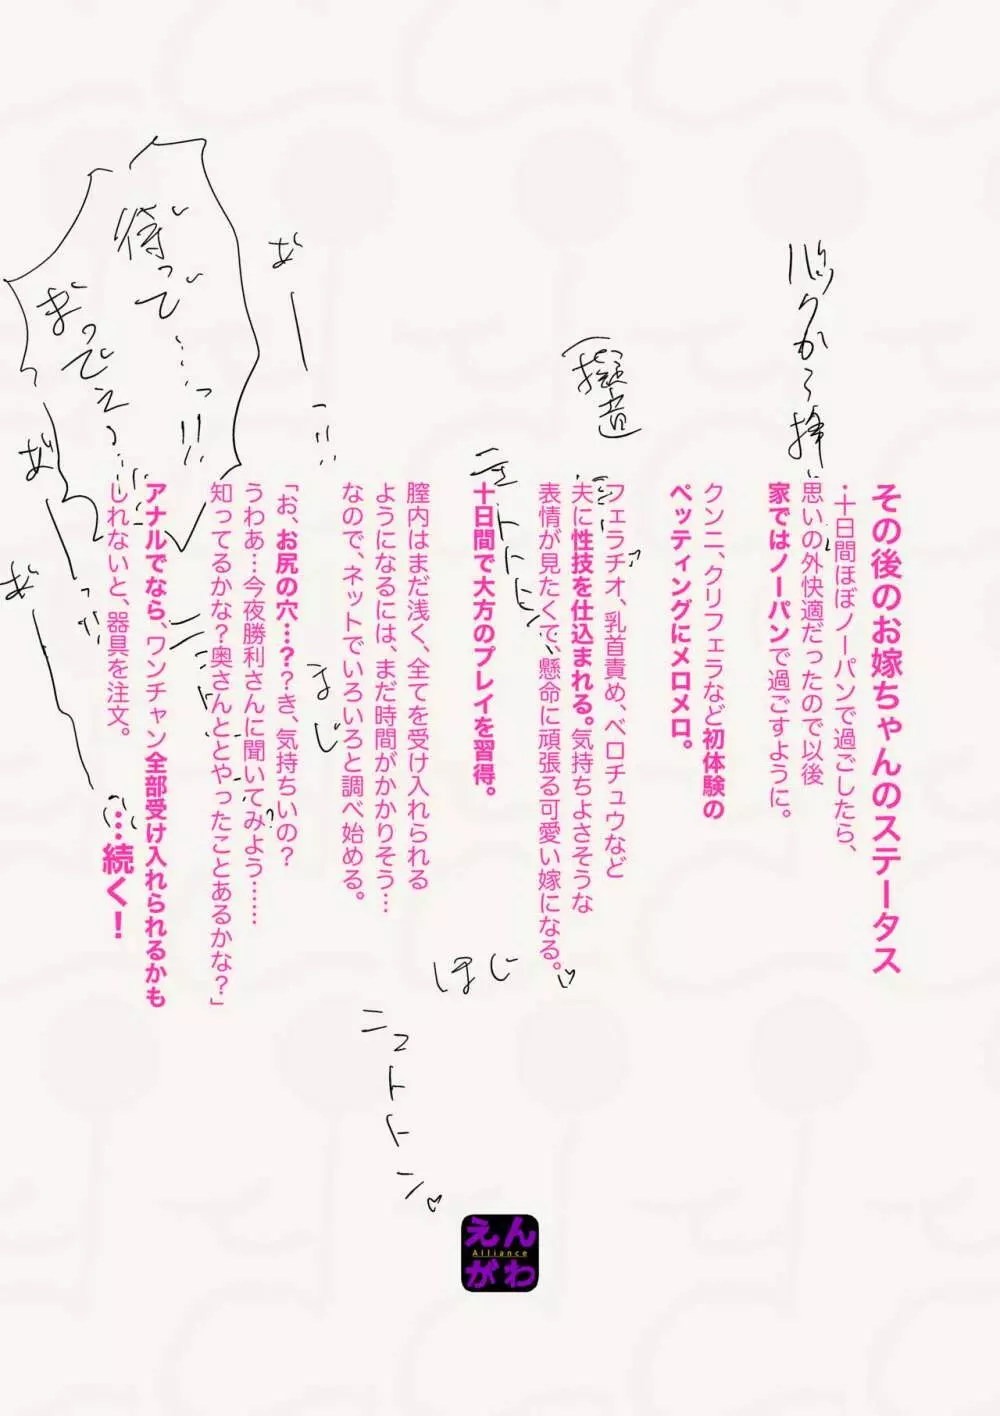 その後のお嫁ちゃんのステータス
・十日間ほぼノーパンで過ごしたら、
思いの外快適だったので以後
家ではノーパンで過ごすように。
クンニ、クリフェラなど初体験の
ペッティングにメロメロ。
フェラチオ、乳首責め、ベロチュウなど
夫に性技を仕込まれる。気持ちよさそうな
表情が見たくて、懸命に頑張る可愛い嫁になる。
十日間で大方のプレイを習得。
膣内はまだ浅く、全てを受け入れられる
ようになるには、まだ時間がかかりそう…
なので、ネットでいろいろと調べ始める。
「お、お尻の穴…？？き、気持ちいの？
うわあ…今夜勝利さんに聞いてみよう……
知ってるかな？奥さんととやったことあるかな？」
アナルでなら、ワンチャン全部受け入れられるかも
しれないと、器具を注文。
…続く！
待っで…っ!!
まっでえ
ほじ
まじ
ニュトトン♡
えん
Alliance
がわ